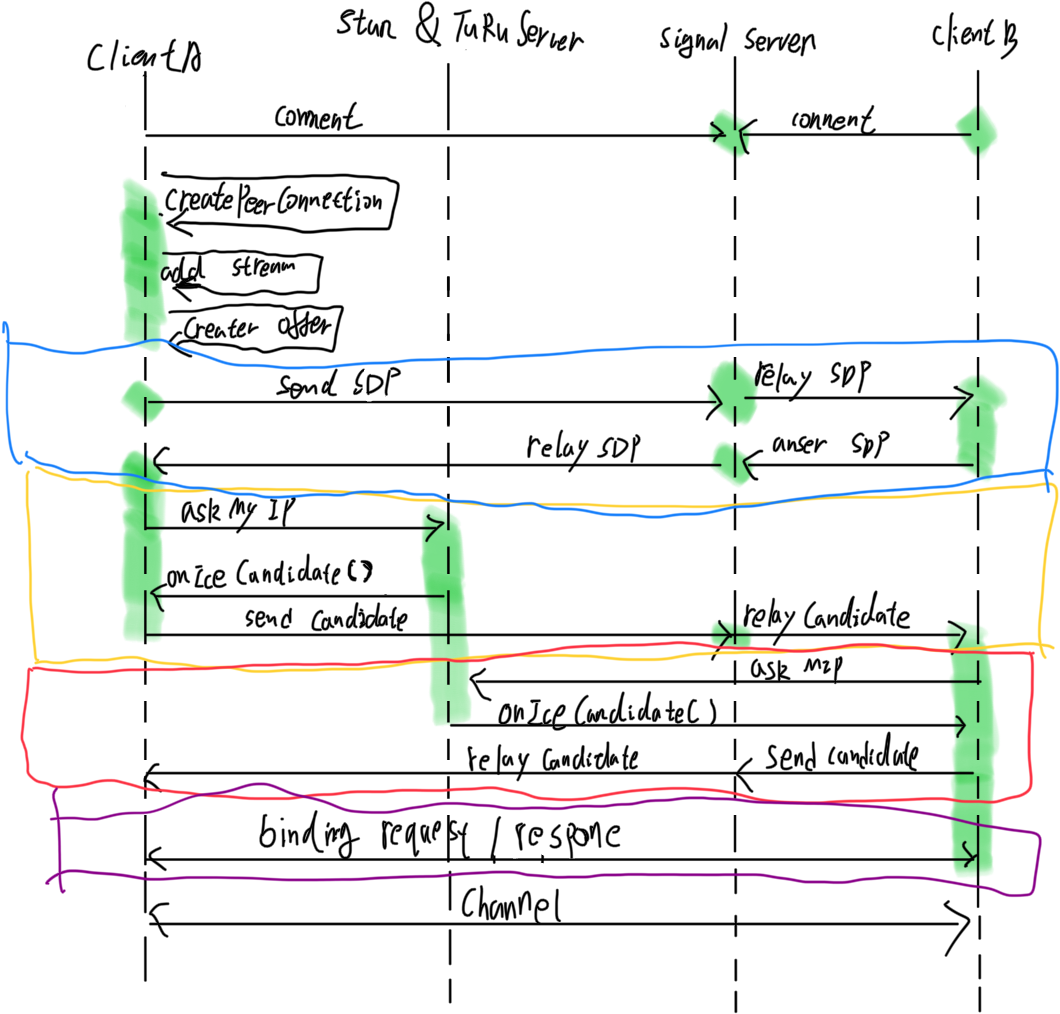 Client A
Stun & TuRu Server
signal server
client B
connent
connent
createPeerConnection
add stream
Creater offer
send SDP
relay SDP
relay SDP
anser SDP
ask My IP
onIce Candidate()
send Candidate
relay Candidate
ask
onIce Candidate()
relay Candidate
send candidate
binding request / respone
Channel